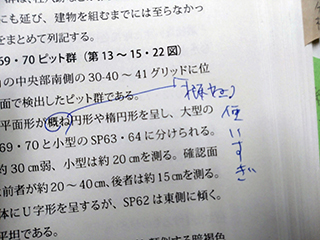 にも延び、建物を組むまでには至らなかっ
をまとめて列記する。
69・70ピット群（第13〜15・22図）
の中央部南側の30-40〜41グリッドに位
面で検出したピット群である。
平面形が概ね円形や楕円形を呈し、大型の
69・70と小型のSP63・64に分けられる。
約30㎝弱、小型は約20㎝を測る。確認面
は前者が約20〜40㎝、後者は約15㎝を測る。
体にU字形を呈するが、SP62は東側に傾く。
平坦である。
使いすぎ